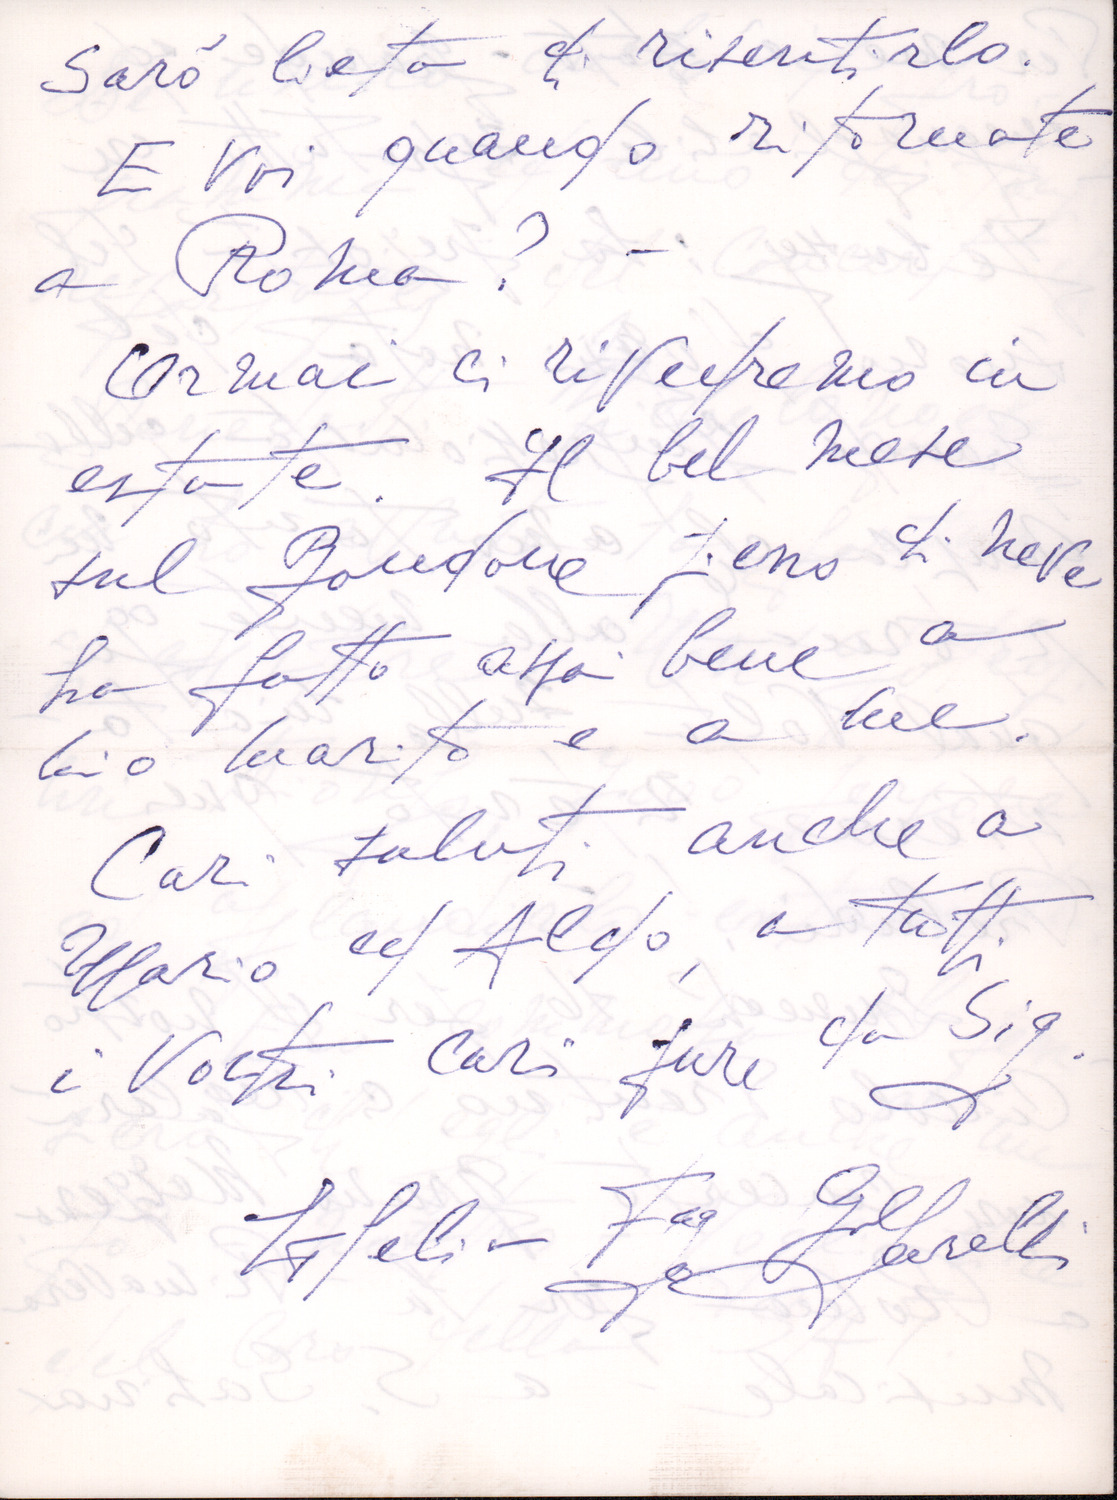 Sarò lieta di risentirlo.
E Voi quando ritornate
a Roma? -
Ormai ci rivedremo in
estate. Il bel mese
sul Bondone pieno di neve
ha fatto assai bene a
mio marito e a me.
Cari saluti anche a
Mario ed Aldo, a tutti
i Vostri cari pure da Sig.